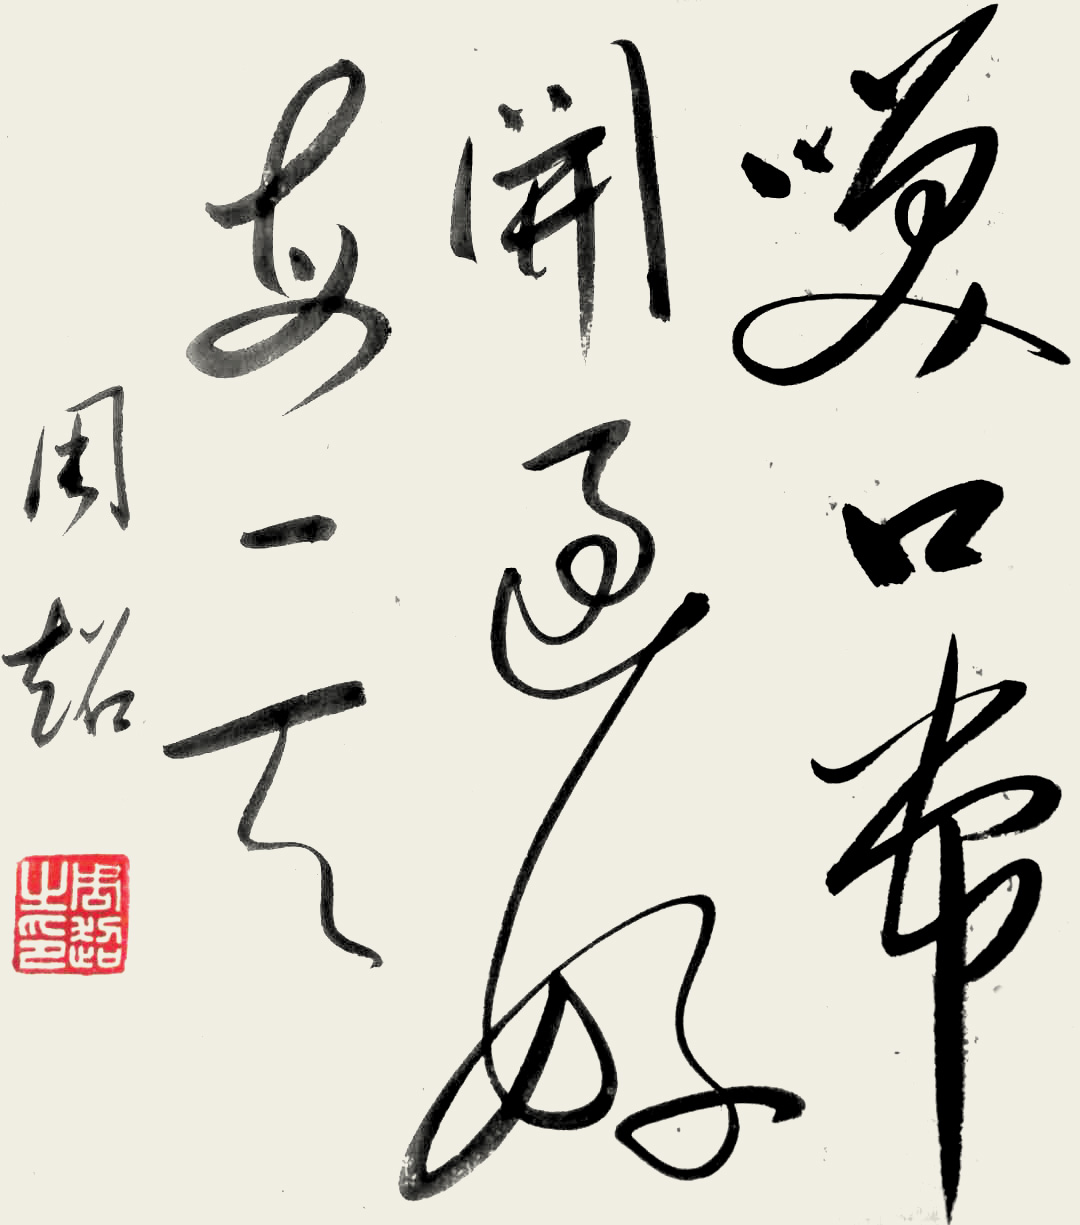 笑口常
開過好
每一天
周超
周超之印